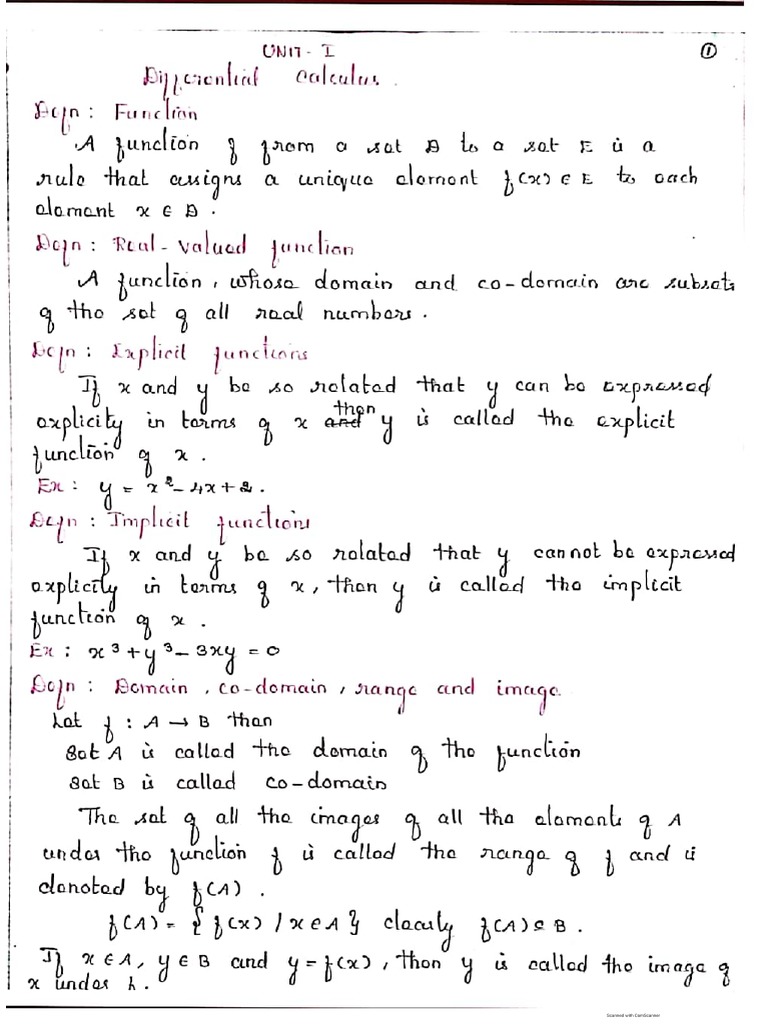 UNIT - I
①
Differential Calculus.
Defn : Function
A function f from a set D to a set E is a
rule that assigns a unique element f(x) ∈ E to each
element x ∈ D.
Defn : Real-Valued function
A function, whose domain and co-domain are subsets
of the set of all real numbers.
Defn : Explicit functions
If x and y be so related that y can be expressed
explicity in terms of x then y is called the explicit
function of x.
Ex : y = x² - 4x + 2.
Defn : Implicit functions
If x and y be so related that y cannot be expressed
explicity in terms of x, then y is called the implicit
function of x.
Ex : x³ + y³ - 3xy = 0
Defn : Domain, co-domain, range and image
Let f : A → B then
Set A is called the domain of the function
Set B is called co-domain
The set of all the images of all the elements of A
under the function f is called the range of f and is
denoted by f(A).
f(A) = { f(x) / x ∈ A } clearly f(A) ⊆ B.
If x ∈ A, y ∈ B and y = f(x), then y is called the image of
x under
Scanned with CamScanner